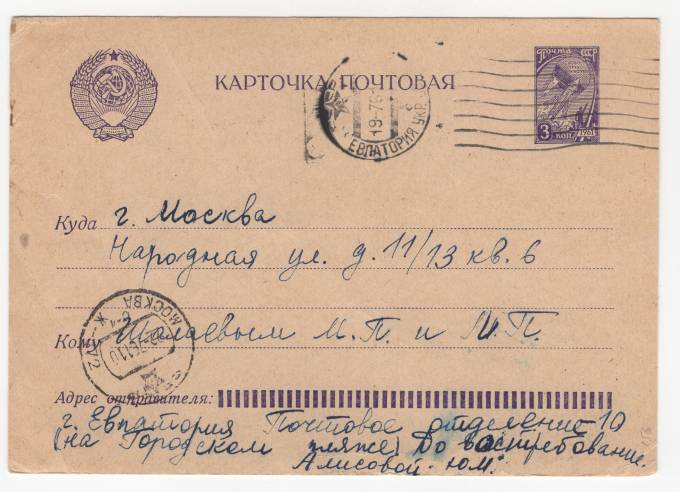 КАРТОЧКА ПОЧТОВАЯ
ПОЧТА СССР
3 КОП. 1961
ЕВПАТОРИЯ УКР.
Куда г. Москва
Народная ул. д. 11/13 кв. 6
МОСКВА Ж-172
Кому Шалаевым М.П. и М.П.
Адрес отправителя:
г. Евпатория Почтовое отделение-10
(на Городском пляже) До востребование.
Алисовой. Ю.М.